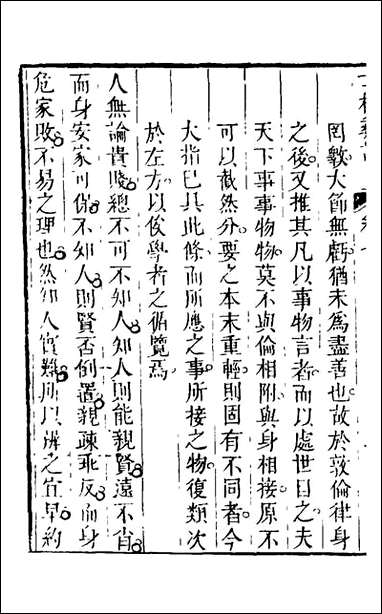 罔斁大節無虧猶未為盡善也故於敦倫律身
之後又推其凡以事物言者而以處世曰之夫
天下事事物物莫不與倫相附與身相接原不
可以截然分要之本末重輕則固有不同者今
大指已具此條而所應之事所接之物復類次
於左方以俟學者之備覽焉
人無論貴賤總不可不知人知人則能親賢遠不肖
而身安家可保不知人則賢否倒置親疎乖反而身
危家敗不易之理也然知人實難所以辨之宜早約